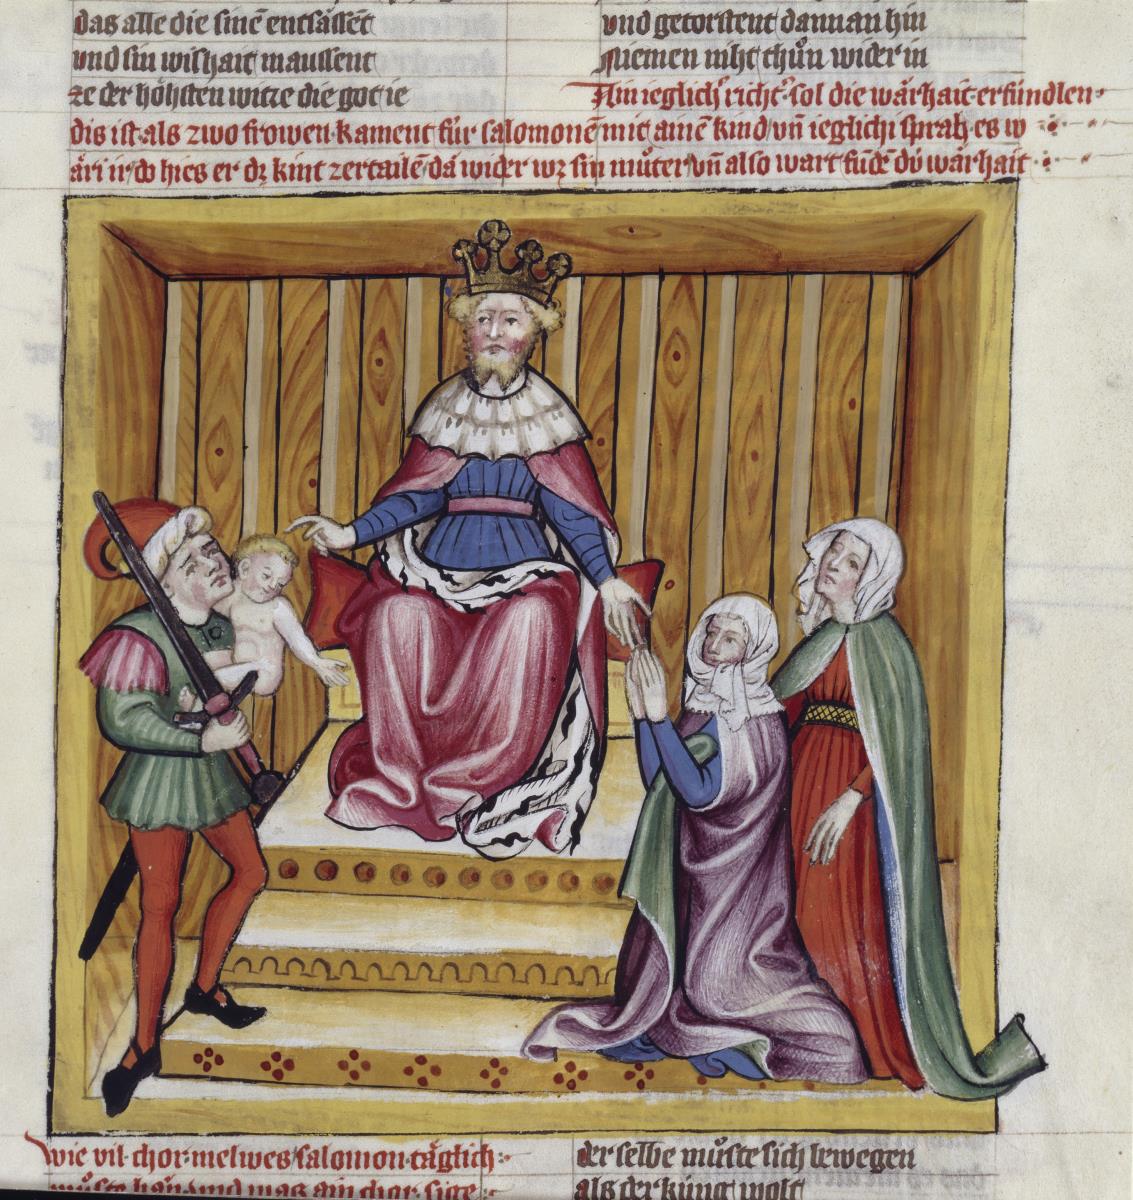 das alle die sinē entsāssēt
und sin wishait maussent
ze der höhsten witze die got ie
und getorstent dannan hin
Niemen niht thůn wider in
Ain ieglichˢ richtˢ sol die wārhait erfundlen
dis ist als zwo frowen kament für salomonē mit ainē kind uñ ieglichi sprah es w
āri ir do hies er dz kint zertailē da wider wz sin můter uñ also wart fūdē dú wārhait
wie vil chor melwes salomon tāglich
můste
der selbe můste sich bewegen
als der küng wolt